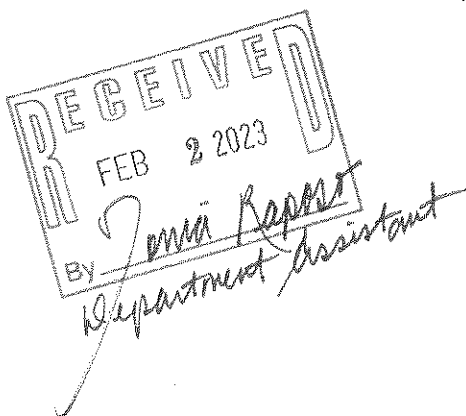 RECEIVED
FEB 2 2023
By Tonia Raposo
Department Assistant